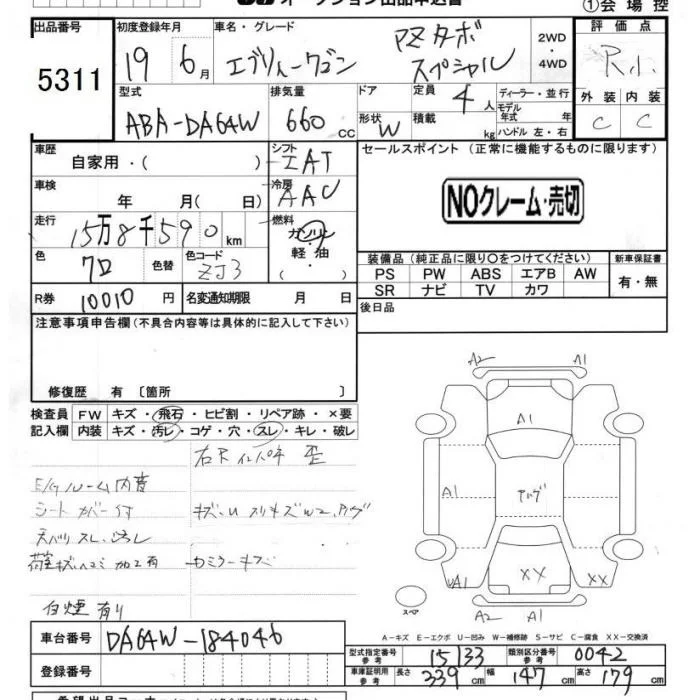 オークション出品申込書
①会場控
出品番号 初度登録年月 車名・グレード 2WD ・ 4WD 評価点
5311 19 6月 エブリィーワゴン PZターボ スペシャル R小
型式 排気量 ドア 定員 4人 ディーラー・並行 外装 内装
ABA-DA64W 660cc 形状 W 積載 kg モデル年式 年 ハンドル 左・右 C C
車歴 自家用・( ) シフト IAT セールスポイント(正常に機能するものに限ります)
車検 年 月( 日) 冷房 AAC
NOクレーム・売切
走行 15万8千590km 燃料 ガソリン・軽油 ( ・ )
色 クロ 色替 色コード ZJ3
装備品(純正品に限り○をつけてください) 新車保証書
PS PW ABS エアB AW 有・無
SR ナビ TV カワ
R券 10010円 名変通知期限 月 日 後日品
注意事項申告欄(不具合内容等は具体的に記入して下さい)
修復歴 有〔箇所 〕
検査員 FW キズ・飛石・ヒビ割・リペア跡・×要
記入欄 内装 キズ・汚レ・コゲ・穴・スレ・キレ・破レ
右Rインパネ 歪
E/gルーム内音
シートカバー付
天バリスレ、汚レ
荷室キズ、ヘコミ 加工有
白煙有り
A2 A1
A1
A1 A1
UA1 XX XX
スペア
A2 A1
A-キズ E-エクボ U-凹み W-補修跡 S-サビ C-腐食 XX-交換済
車台番号 DA64W-184046
登録番号
型式指定番号 参考 15133 類別区分番号 参考 0042
車庫証明用 参考 長さ 339cm 幅 147cm 高さ 179cm